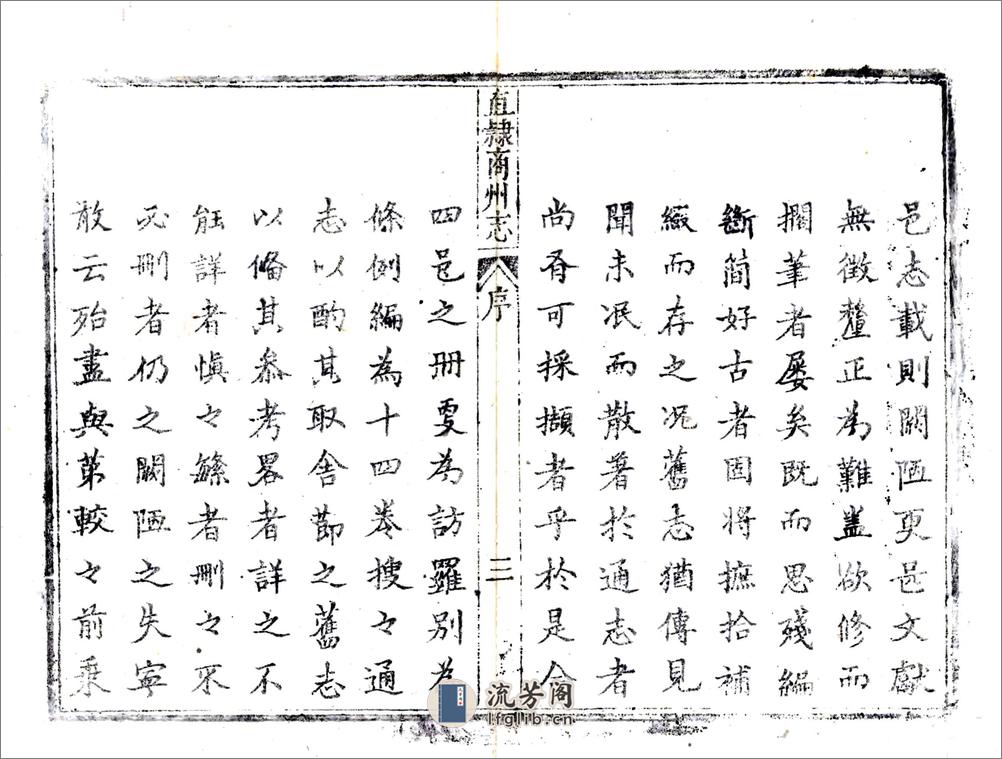 邑志載則闕陋更甚文獻
無徵釐正為難盖欲修而
擱筆者屡矣既而思殘編
斷簡好古者固將摭拾補
綴而存之况舊志猶傳見
聞未泯而散著於通志者
尚有可採擷者乎於是合
直隸商州志
序
三
四邑之冊更為訪羅别為
條例編為十四卷搜々通
志以酌其取舍節之舊志
以俻其叅考畧者詳之不
能詳者慎々繁者刪々不
必刪者仍之闕陋之失寧
敢云殆盡與第較々前乘
流芳阁
lfglib.cn